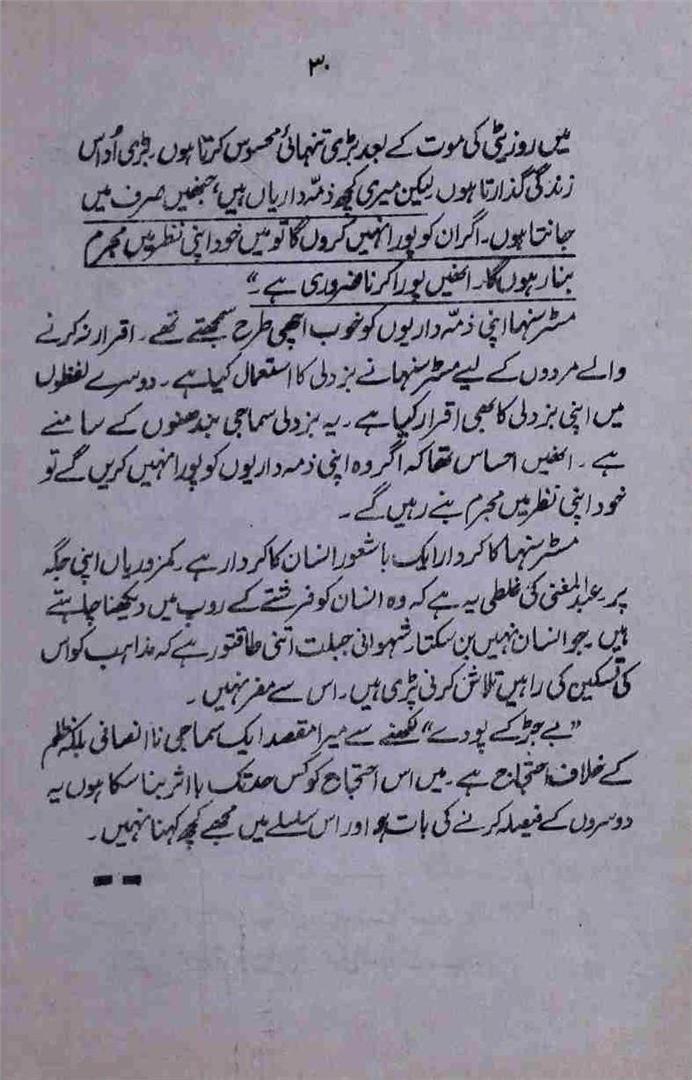 ۳۰
میں روزیٹی کی موت کے بعد بڑی تنہائی محسوس کرتا ہوں۔ بڑی اُداس
زندگی گذارتا ہوں لیکن میری کچھ ذمّہ داریاں ہیں، جنھیں صرف میں
جانتا ہوں۔ اگر ان کو پورا نہیں کروں گا تو میں خود اپنی نظر میں مجرم
بنا رہوں گا۔ انھیں پورا کرنا ضروری ہے۔"
مسٹر سنہا اپنی ذمّہ داریوں کو خوب اچھی طرح سمجھتے تھے۔ اقرار نہ کرنے
والے مردوں کے لیے مسٹر سنہا نے بزدلی کا استعمال کیا ہے۔ دوسرے لفظوں
میں اپنی بزدلی کا بھی اقرار کیا ہے۔ یہ بزدلی سماجی بندھنوں کے سامنے
ہے۔ انھیں احساس تھا کہ اگر وہ اپنی ذمہ داریوں کو پورا نہیں کریں گے تو
خود اپنی نظر میں مجرم بنے رہیں گے۔
مسٹر سنہا کا کردار ایک باشعور انسان کا کردار ہے۔ کمزوریاں اپنی جگہ
پر عبدالمغنی کی غلطی یہ ہے کہ وہ انسان کو فرشتے کے روپ میں دیکھنا چاہتے
ہیں جو انسان نہیں بن سکتا۔ شہوانی جبلت اتنی طاقتور ہے کہ مذاہب کو اس
کی تسکین کی راہیں تلاش کرنی پڑی ہیں۔ اس سے مفر نہیں۔
"بے جڑ کے پودے" لکھنے سے میرا مقصد ایک سماجی ناانصافی بلکہ ظلم
کے خلاف احتجاج ہے۔ میں اس احتجاج کو کس حد تک بااثر بنا سکا ہوں یہ
دوسروں کے فیصلہ کرنے کی بات ہے اور اس سلسلے میں مجھے کچھ کہنا نہیں۔